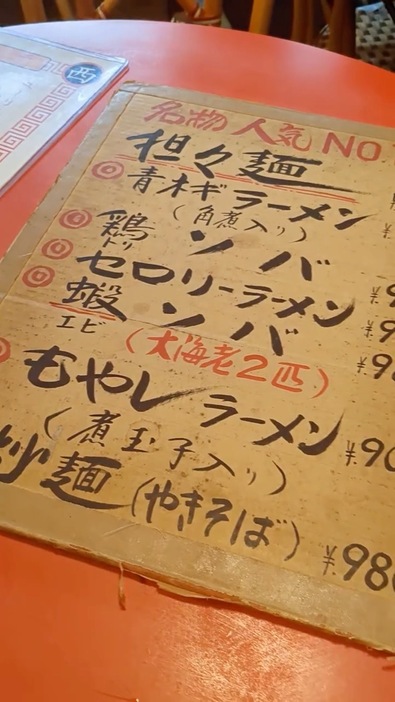 西
名物 人気 NO
担々麺
青ネギラーメン
(角煮入り)
鶏 ソバ
トリ
セロリーラーメン
蝦 ソバ
エビ
(大海老2匹)
もやしラーメン
(煮玉子入り)
炒麺(やきそば)